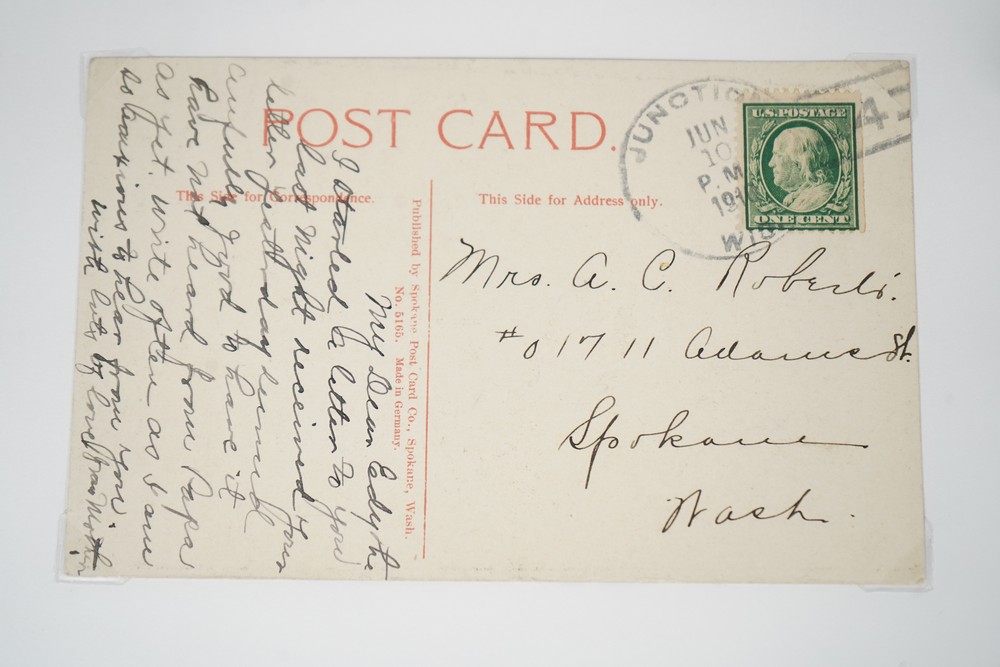 POST CARD.
This Side for Correspondence.
This Side for Address only.
Published by Spokane Post Card Co., Spokane, Wash.
No. 5165. Made in Germany.
JUNCTIO
JUN
10
P. M
191
WIS
4
U.S. POSTAGE
ONE CENT
Mrs. A. C. Roberts.
#01711 Adams St.
Spokane
Wash.
My Dear Edythe
I started a letter to you
last night received your
letter yesterday seemed
awfully good to have it
have not heard from Papa
as yet. write often as I am
so anxious to hear from you
with lots of love from Mother